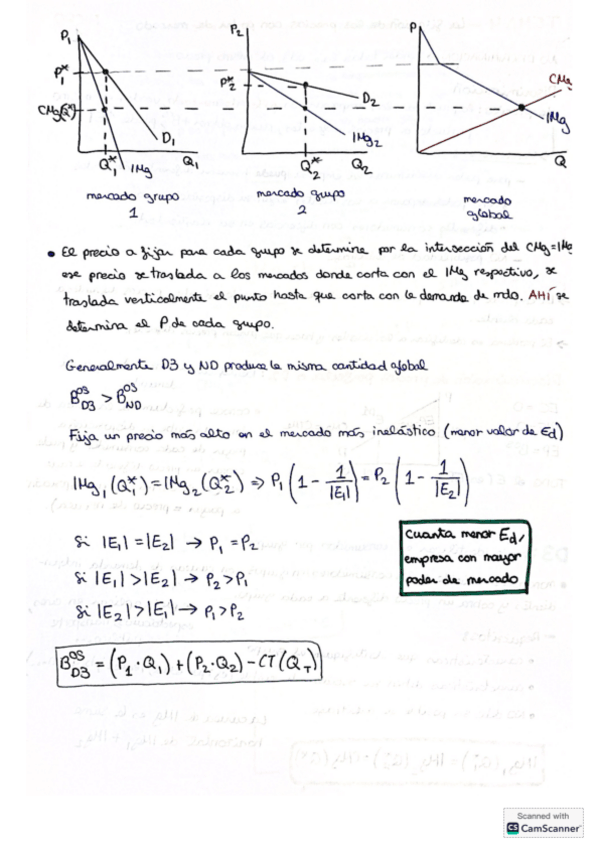 P₁
P₂
P
P₁*
P₂*
CMg
CMg(Q*)
D₂
D₁
IMg₂
IMg
Q₁*
IMg
Q₁
Q₂*
Q₂
Q
mercado grupo
1
mercado grupo
2
mercado
global
• El precio a fijar para cada grupo se determina por la intersección del CMg=IMg
ese precio se traslada a los mercados donde corta con el IMg respectivo, se
traslada verticalmente el punto hasta que corta con la demanda de mdo. AHÍ se
determina el P de cada grupo.
Generalmente D3 y ND produce la misma cantidad global
B^OS_D3 > B^OS_ND
Fija un precio más alto en el mercado más inelástico (menor valor de Ed)
IMg₁(Q₁*) = IMg₂(Q₂*) ⇒ P₁(1 - 1/|E₁|) = P₂(1 - 1/|E₂|)
Si |E₁| = |E₂| → P₁ = P₂
Si |E₁| > |E₂| → P₂ > P₁
Si |E₂| > |E₁| → P₁ > P₂
Cuanta menor Ed,
empresa con mayor
poder de mercado
B^OS_D3 = (P₁·Q₁) + (P₂·Q₂) - CT(Q_T)
Scanned with
CS CamScanner